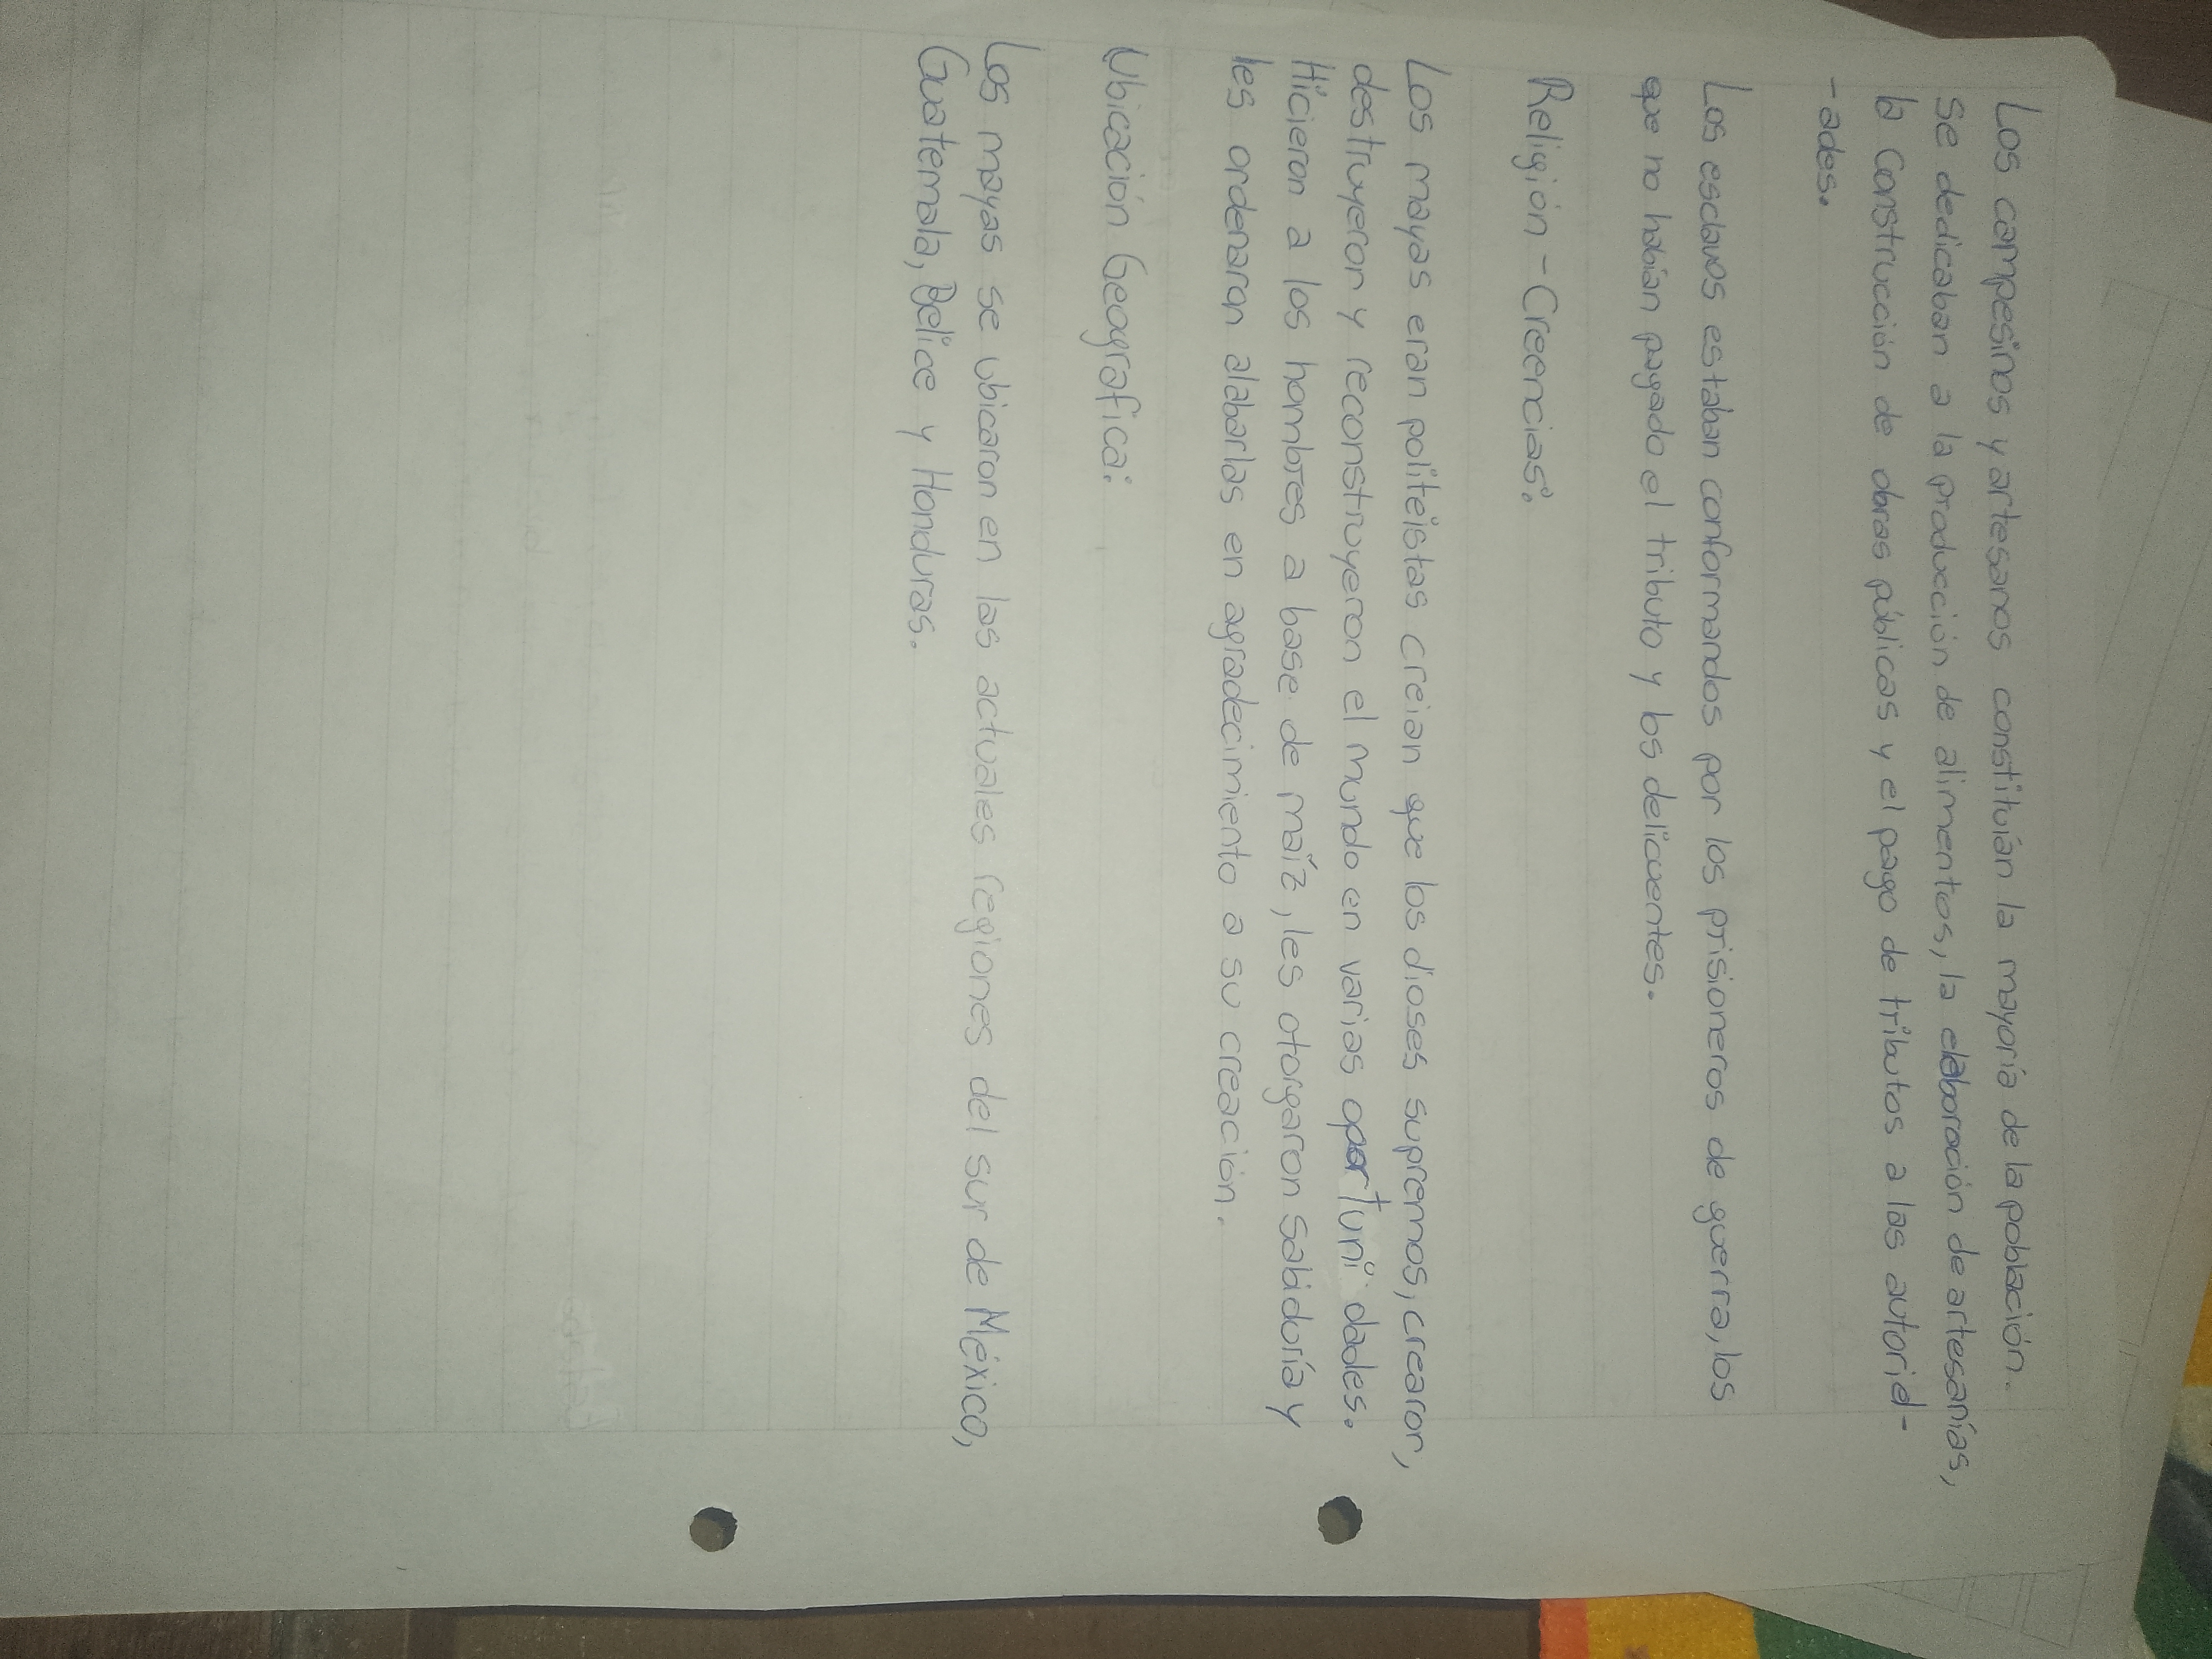 Los campesinos y artesanos constituían la mayoría de la población.
se dedicaban a la producción de alimentos, la elaboración de artesanías,
la construcción de obras públicas y el pago de tributos a las autorid-
-ades.
Los esclavos estaban conformandos por los prisioneros de guerra, los
que no habían pagado el tributo y los delicuentes.
Religión - Creencias:
Los mayas eran politeístas creian que los dioses supremos, crearon,
destruyeron y reconstruyeron el mundo en varias oportuni dades.
Hicieron a los hombres a base de maíz, les otorgaron sabiduría y
les ordenaron alabarlos en agradecimiento a su creación.
Ubicación Geografica:
Los mayas se ubicaron en las actuales regiones del sur de México,
Guatemala, Belice y Honduras.